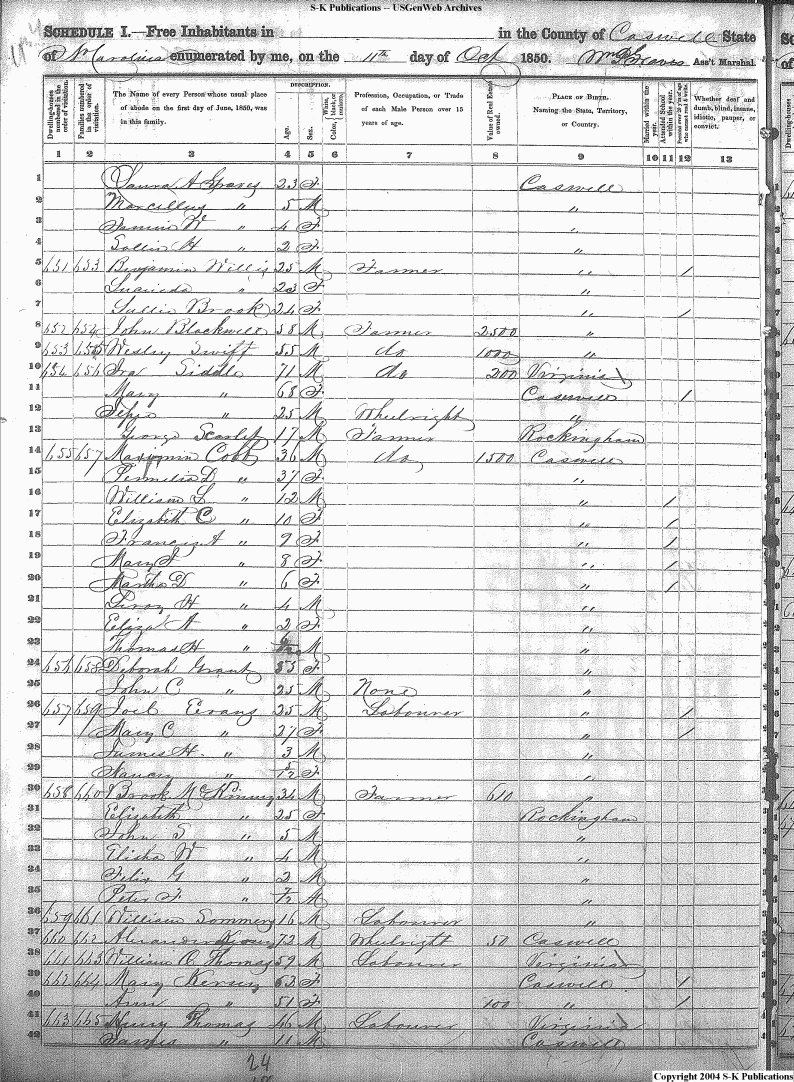 S-K Publications -- USGenWeb Archives
SCHEDULE I.—Free Inhabitants in in the County of Caswell State
of N. Carolina enumerated by me, on the 11th day of Oct 1850. Wm Graves Ass't Marshal.
Dwelling-houses numbered in the order of visitation. Families numbered in the order of visitation. The Name of every Person whose usual place of abode on the first day of June, 1850, was in this family. DESCRIPTION. Age. Sex. Color, White, black, or mulatto. Profession, Occupation, or Trade of each Male Person over 15 years of age. Value of Real Estate owned. PLACE OF BIRTH. Naming the State, Territory, or Country. Married within the year. Attended School within the year. Persons over 20 y'rs of age who cannot read & write. Whether deaf and dumb, blind, insane, idiotic, pauper, or convict.
1 2 3 4 5 6 7 8 9 10 11 12 13
1 Laura A Graves 23 F Caswell
2 Marcellus " 5 M "
3 W " 4 F "
4 Sallie H " 2 F "
5 651 653 Benjamin Willis 25 M Farmer " /
6 " 23 F "
7 Brook 24 F " /
8 652 654 John Blackwell 58 M Farmer 2500 "
9 653 655 Wesley Swift 55 M do 1000 "
10 654 656 Ira Siddle 71 M do 200 Virginia
11 Mary " 68 F Caswell /
12 " 25 M Wheelright "
13 George Scarlet 17 M Farmer Rockingham
14 655 657 Cobb 36 M do 1500 Caswell
15 D " 37 F "
16 William L " 12 M " /
17 Elizabeth C " 10 F " /
18 Francis A " 9 F " /
19 Mary F " 8 F " /
20 Martha D " 6 F " /
21 Leroy H " 4 M "
22 Eliza A " 2 F "
23 Thomas H " M "
24 656 658 Deborah Grant 55 F "
25 John C " 25 M None "
26 657 659 Joel Evans 25 M Labourer " /
27 Mary C " 27 F " /
28 James H. " 3 M "
29 Nancy " 5/12 F "
30 658 660 Brook McKinney 34 M Farmer 610 "
31 Elizabeth " 25 F Rockingham
32 John S " 5 M "
33 Elisha W " 4 M "
34 Felix G " 2 M "
35 Peter F " 7/12 M "
36 659 661 William Sommers 16 M Labourer "
37 660 662 Alexander 72 M Wheelright 50 Caswell
38 661 663 William C Thomas 59 M Labourer Virginia
39 662 664 Mary Kersey 62 F Caswell /
40 Ann " 51 F 100 " /
41 663 665 Henry Thomas 46 M Labourer Virginia
42 James " 11 M Caswell
24
Copyright 2004 S-K Publications